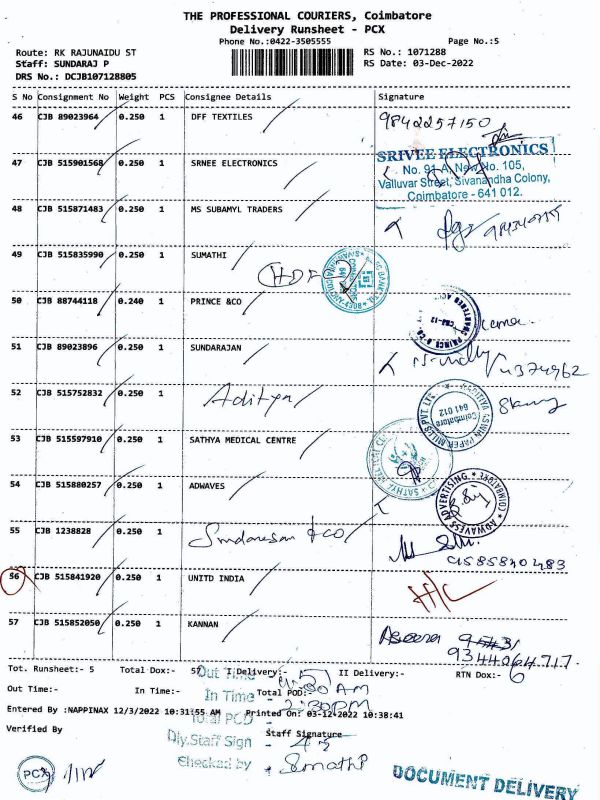 THE PROFESSIONAL COURIERS, Coimbatore
Delivery Runsheet - PCX
Phone No.:0422-3505555 Page No.:5
Route: RK RAJUNAIDU ST RS No.: 1071288
Staff: SUNDARAJ P RS Date: 03-Dec-2022
DRS No.: DCJB107128805
S No Consignment No Weight PCS Consignee Details Signature
46 CJB 89023964 0.250 1 DFF TEXTILES 9842257150
47 CJB 515901568 0.250 1 SRNEE ELECTRONICS
SRIVEE ELECTRONICS
No. 91-A, New No. 105,
Valluvar Street, Sivanandha Colony,
Coimbatore - 641 012.
48 CJB 515871483 0.250 1 MS SUBAMYL TRADERS
49 CJB 515835990 0.250 1 SUMATHI
50 CJB 88744118 0.240 1 PRINCE &CO
51 CJB 89023896 0.250 1 SUNDARAJAN
52 CJB 515752832 0.250 1 Aditya
Coimbatore
641 012
53 CJB 515597910 0.250 1 SATHYA MEDICAL CENTRE
54 CJB 515880257 0.250 1 ADWAVES
55 CJB 1238828 0.250 1 Sundaresan & CO
56 CJB 515841920 0.250 1 UNITD INDIA
57 CJB 515852050 0.250 1 KANNAN
9344064717
Tot. Runsheet:- 5 Total Dox:- 57 I Delivery:- 51 II Delivery:- RTN Dox:- 6
Out Time:- In Time:- Total POD:-
Out Time
In Time - 2:30PM
Entered By :NAPPINAX 12/3/2022 10:31:55 AM Printed On: 03-12-2022 10:38:41
Total POD -
Verified By Staff Signature
Dly.Staff Sign -
Checked by -
PCX
DOCUMENT DELIVERY